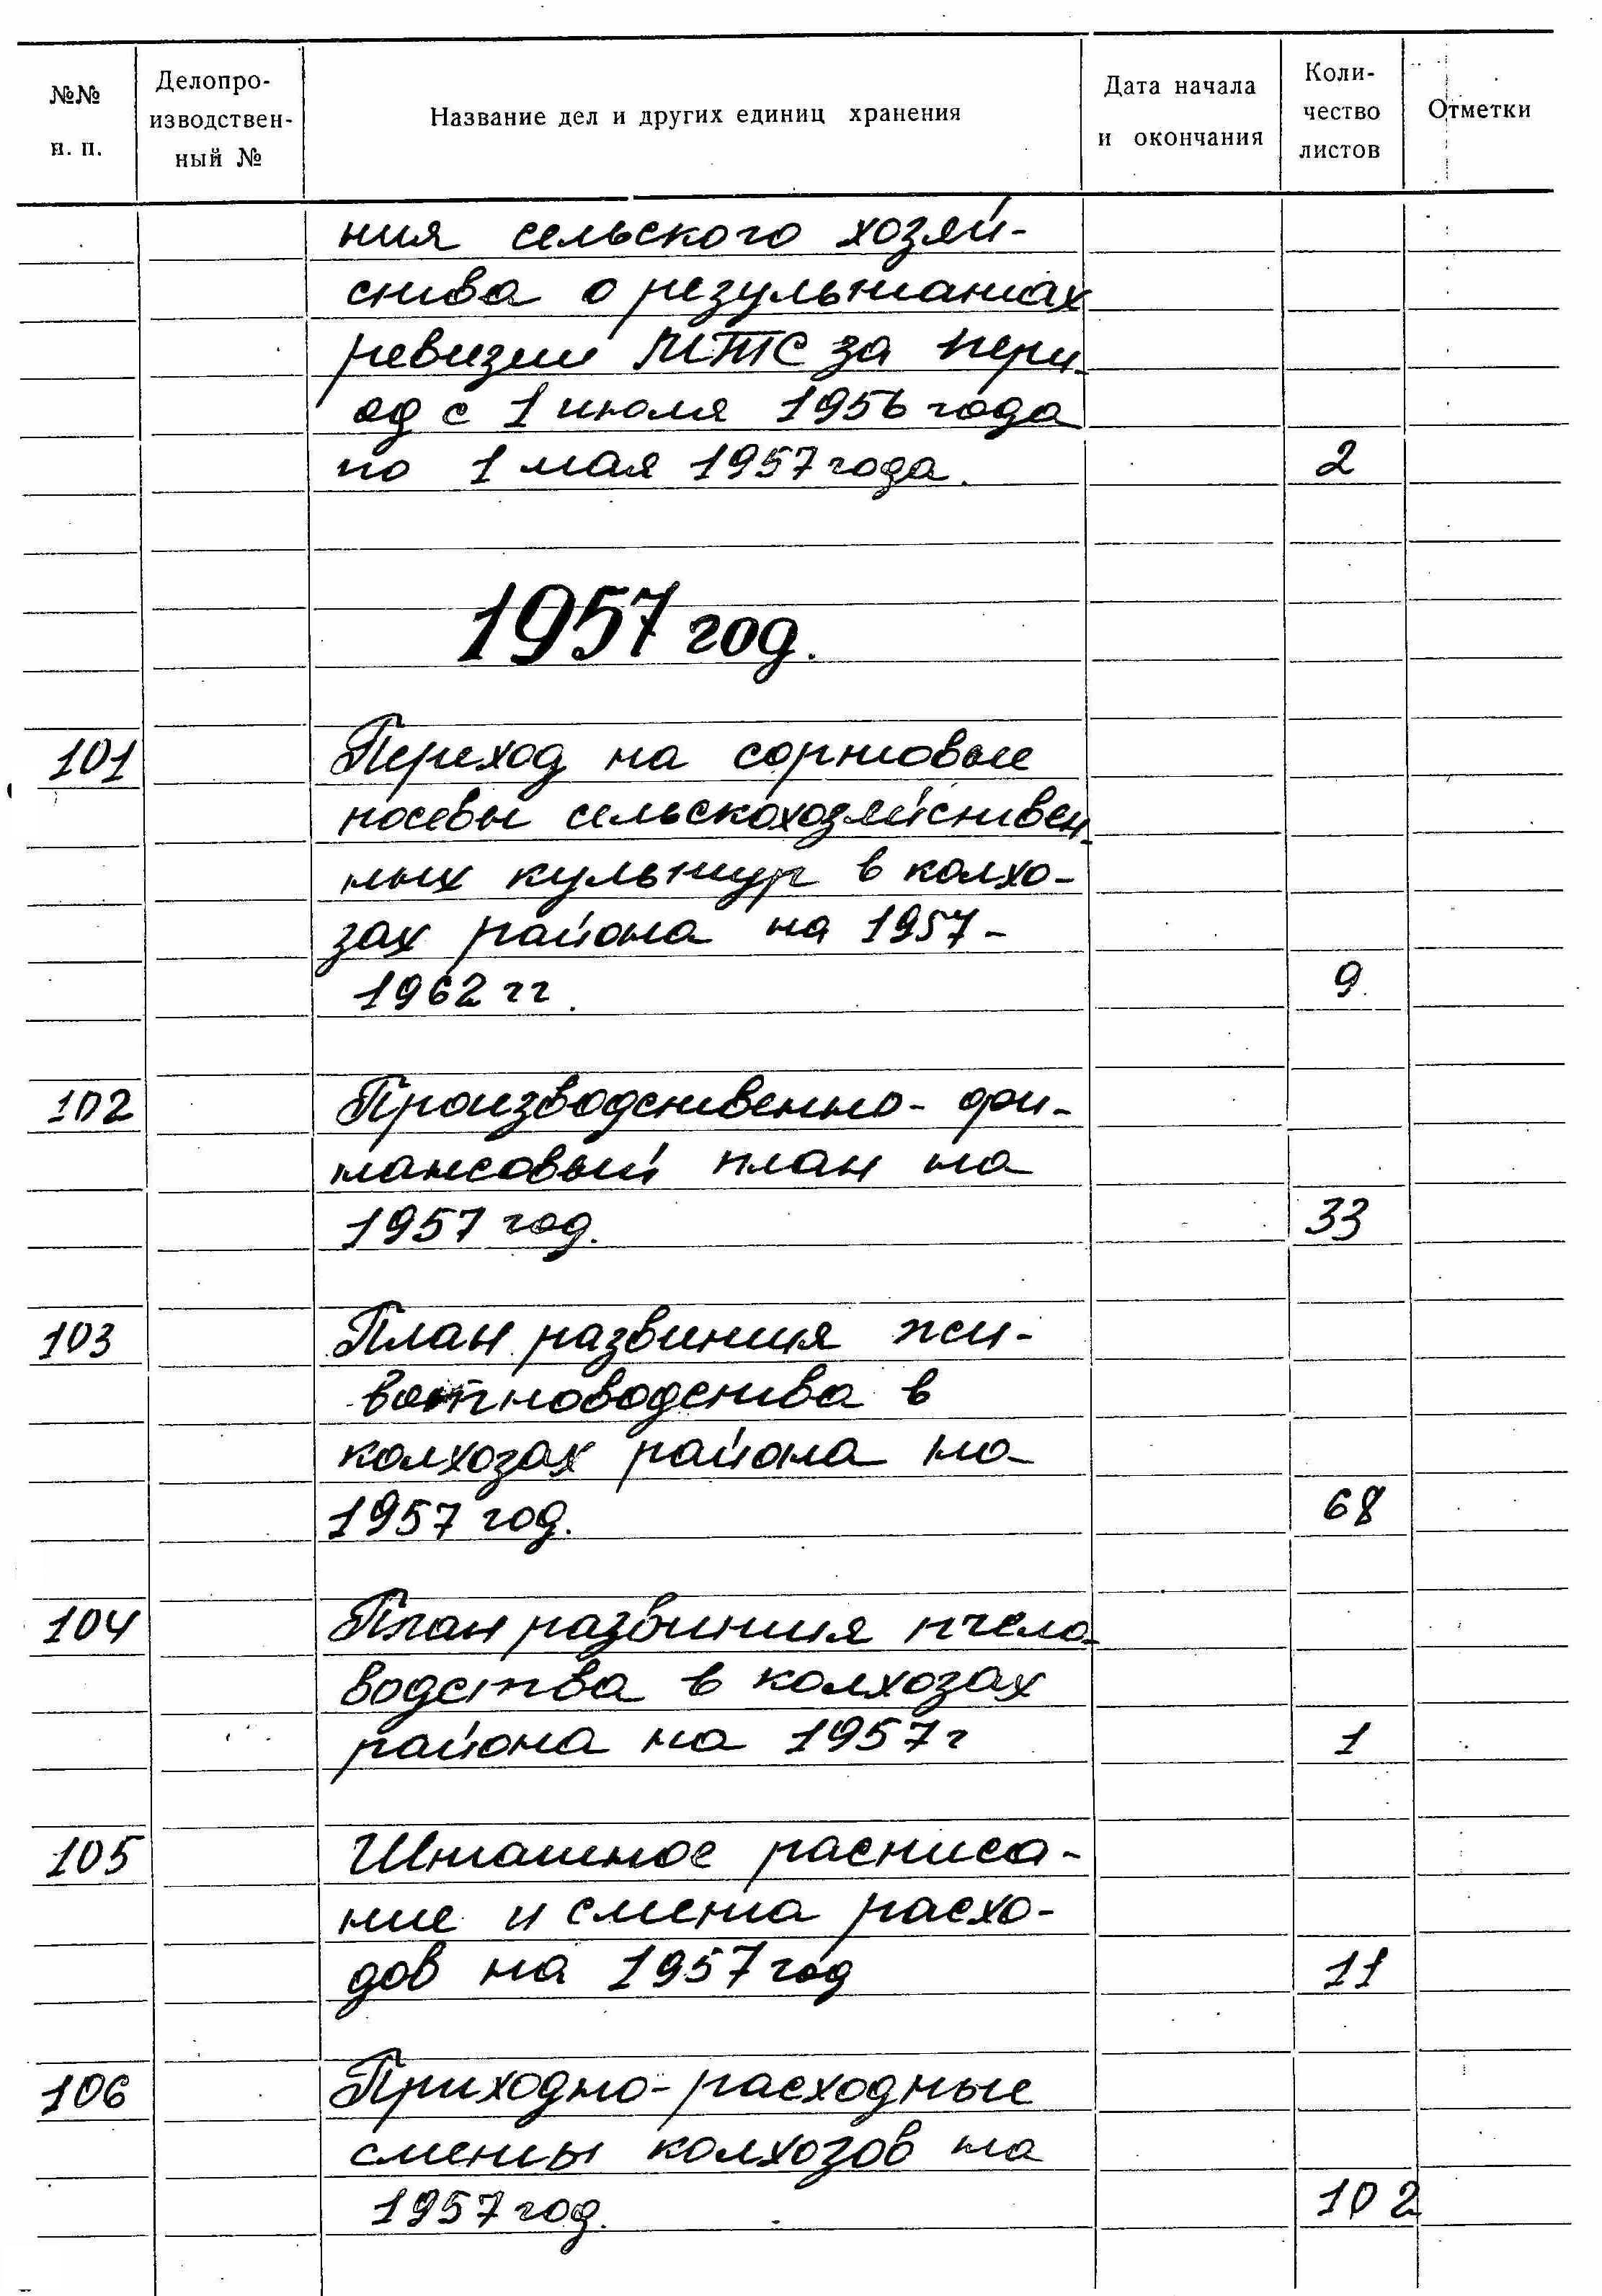 №№ н. п.
Делопро-
изводствен-
ный №
Название дел и других единиц хранения
Дата начала
и окончания
Коли-
чество
листов
Отметки
ния сельского хозяй-
ства о результатах
ревизии МТС за пери-
од с 1 июля 1956 года
по 1 мая 1957 года. 2
1957 год.
101 Переход на сортовые
посевы сельскохозяйствен-
ных культур в колхо-
зах района на 1957-
1962 гг. 9
102 Производственно-фи-
нансовый план на
1957 год. 33
103 План развития жи-
вотноводства в
колхозах района на
1957 год. 68
104 План развития пчело-
водства в колхозах
района на 1957 г 1
105 Штатное расписа-
ние и смета расхо-
дов на 1957 год 11
106 Приходно-расходные
сметы колхозов на
1957 год. 102